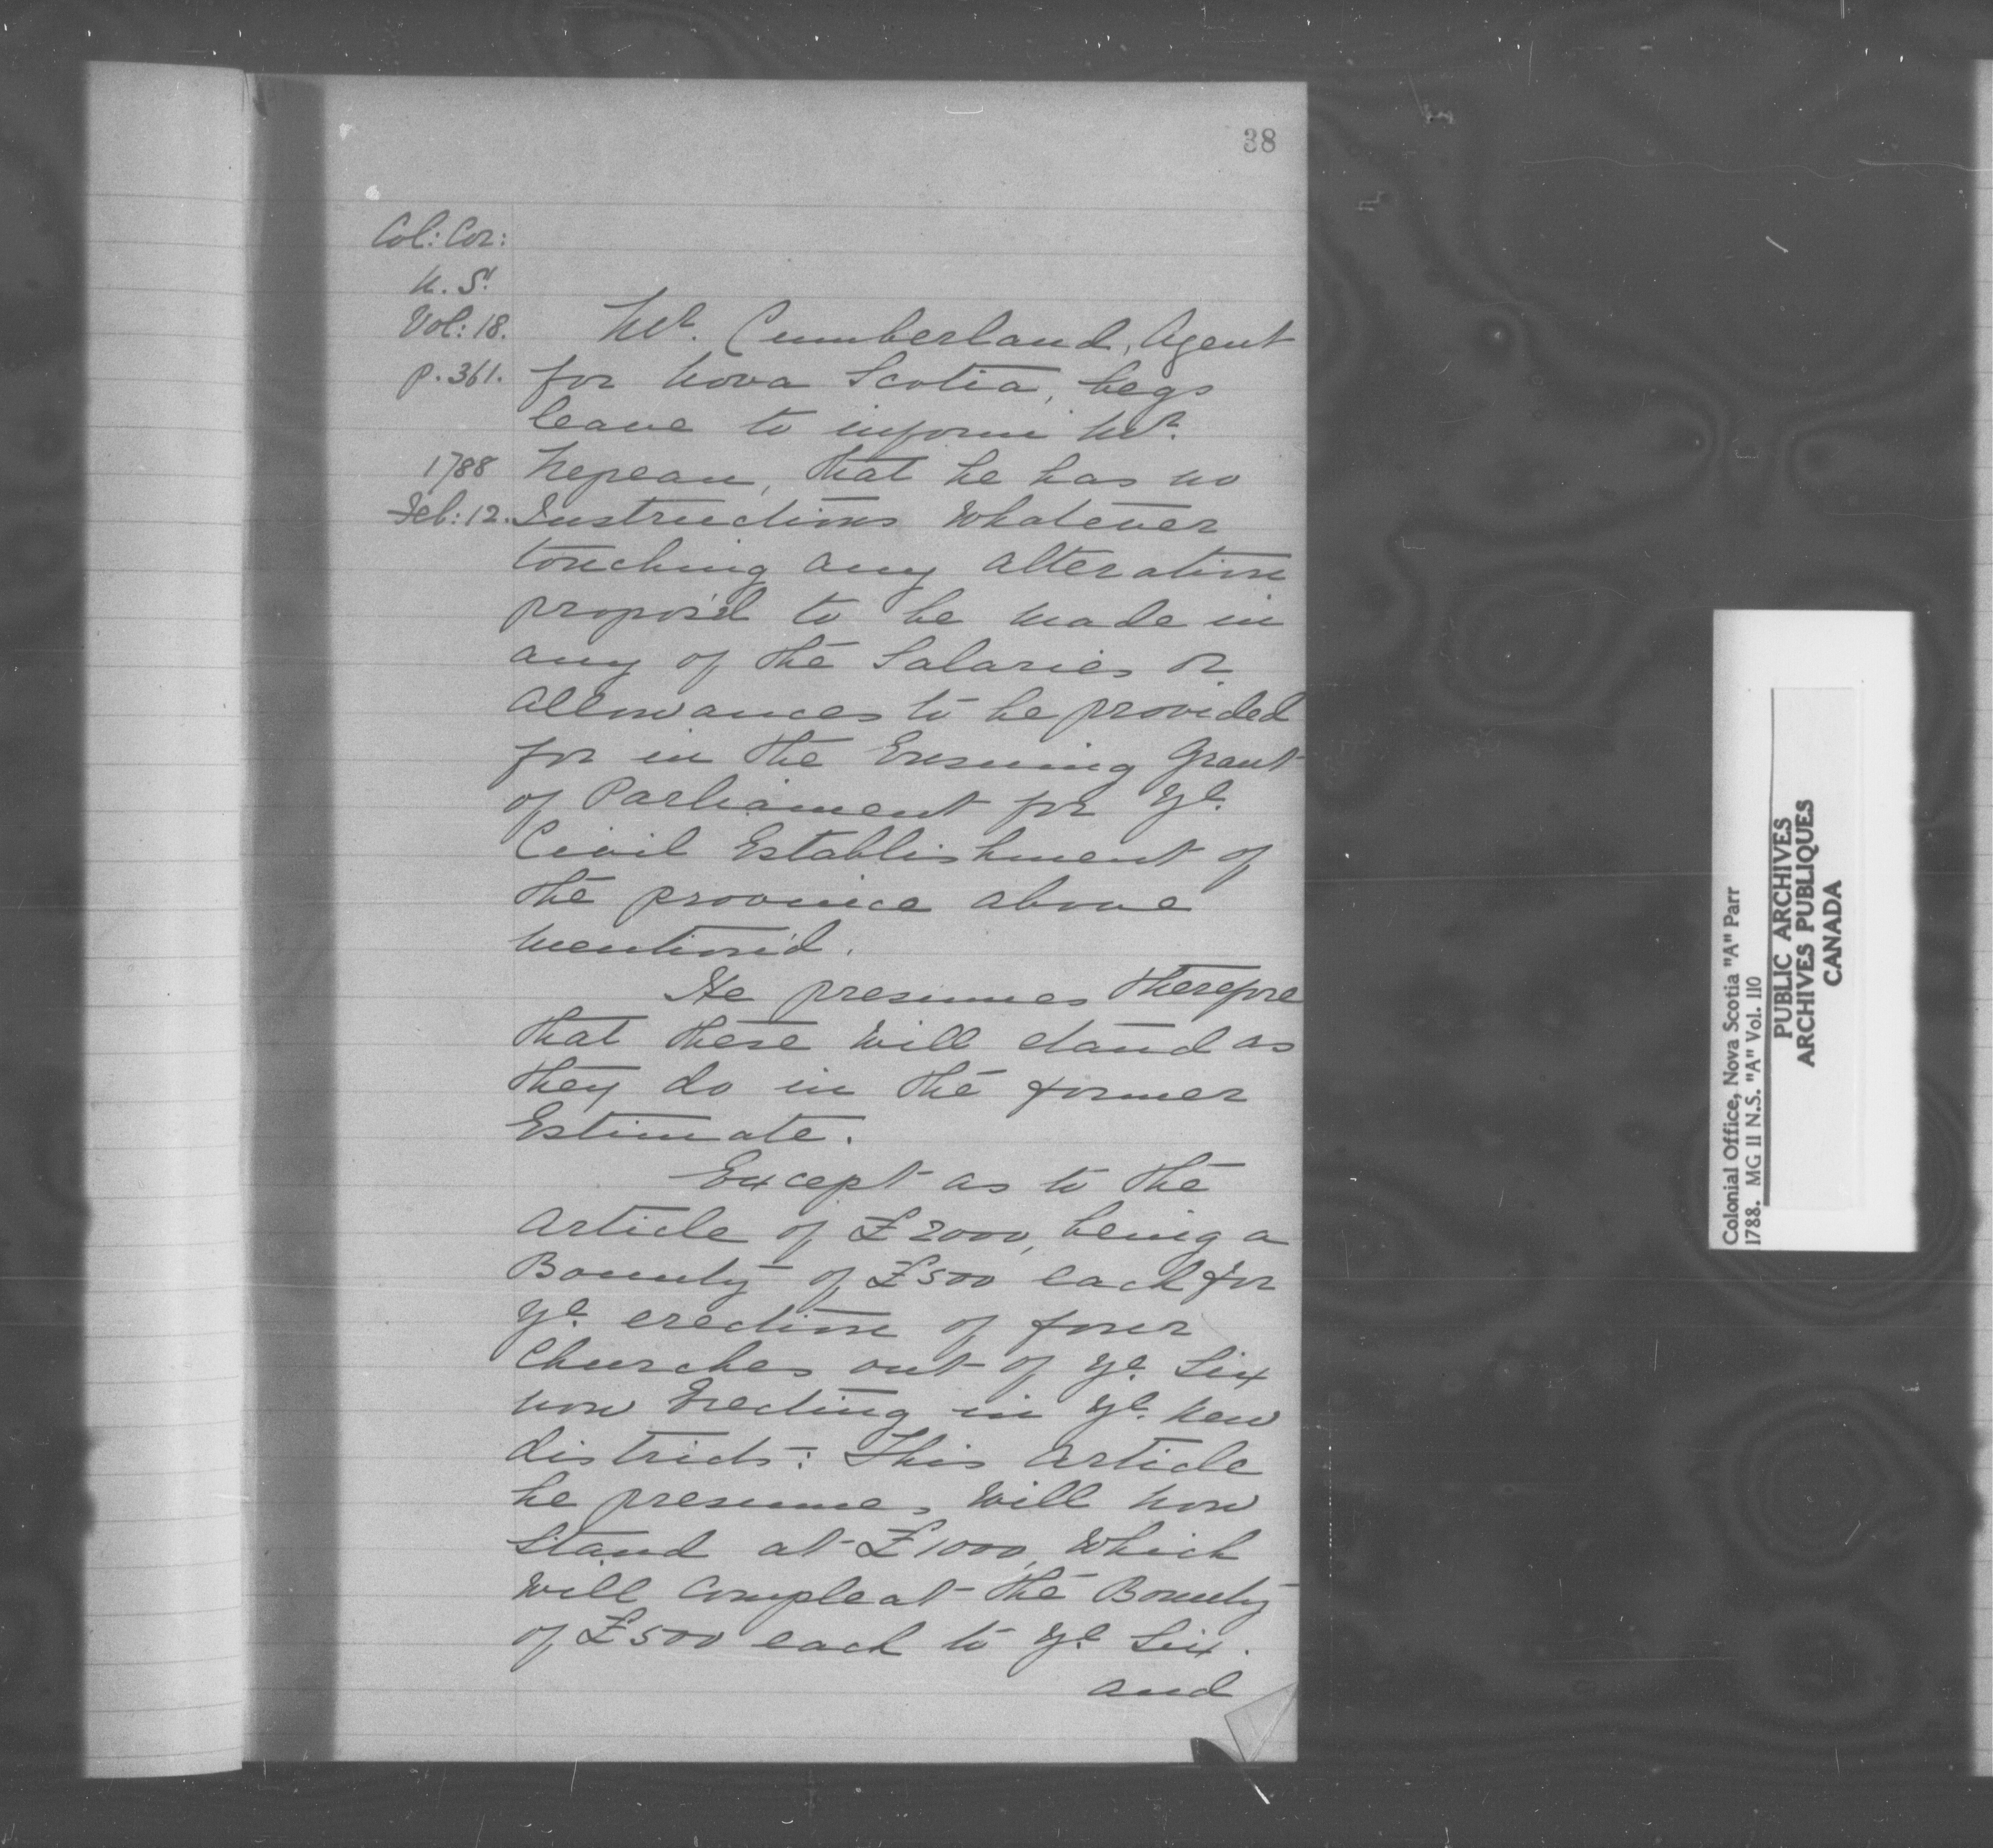 38
Col: Cor:
N. S.
Vol: 18.
p. 361.
1788
Feb: 12.
Mr. Cumberland, Agent
for Nova Scotia, begs
leave to inform Mr.
Nepean, that he has no
Instructions Whatever
touching any alteration
propos'd to be made in
any of the Salaries or
Allowances to be provided
for in the Ensuing Grant
of Parliament for ye.
Civil Establishment of
the province above
mention'd.
He presumes therefore
that these will stand as
they do in the former
Estimate.
Except as to the
Article of £2000, being a
Bounty of £500 each for
ye. erection of four
Churches out of ye. Six
now Erecting in ye. New
districts: This Article
he presumes Will now
Stand at £1000, Which
Will Compleat the Bounty
of £500 each to ye Six.
and
Colonial Office, Nova Scotia "A" Parr
1788. MG 11 N.S. "A" Vol. 110
PUBLIC ARCHIVES
ARCHIVES PUBLIQUES
CANADA